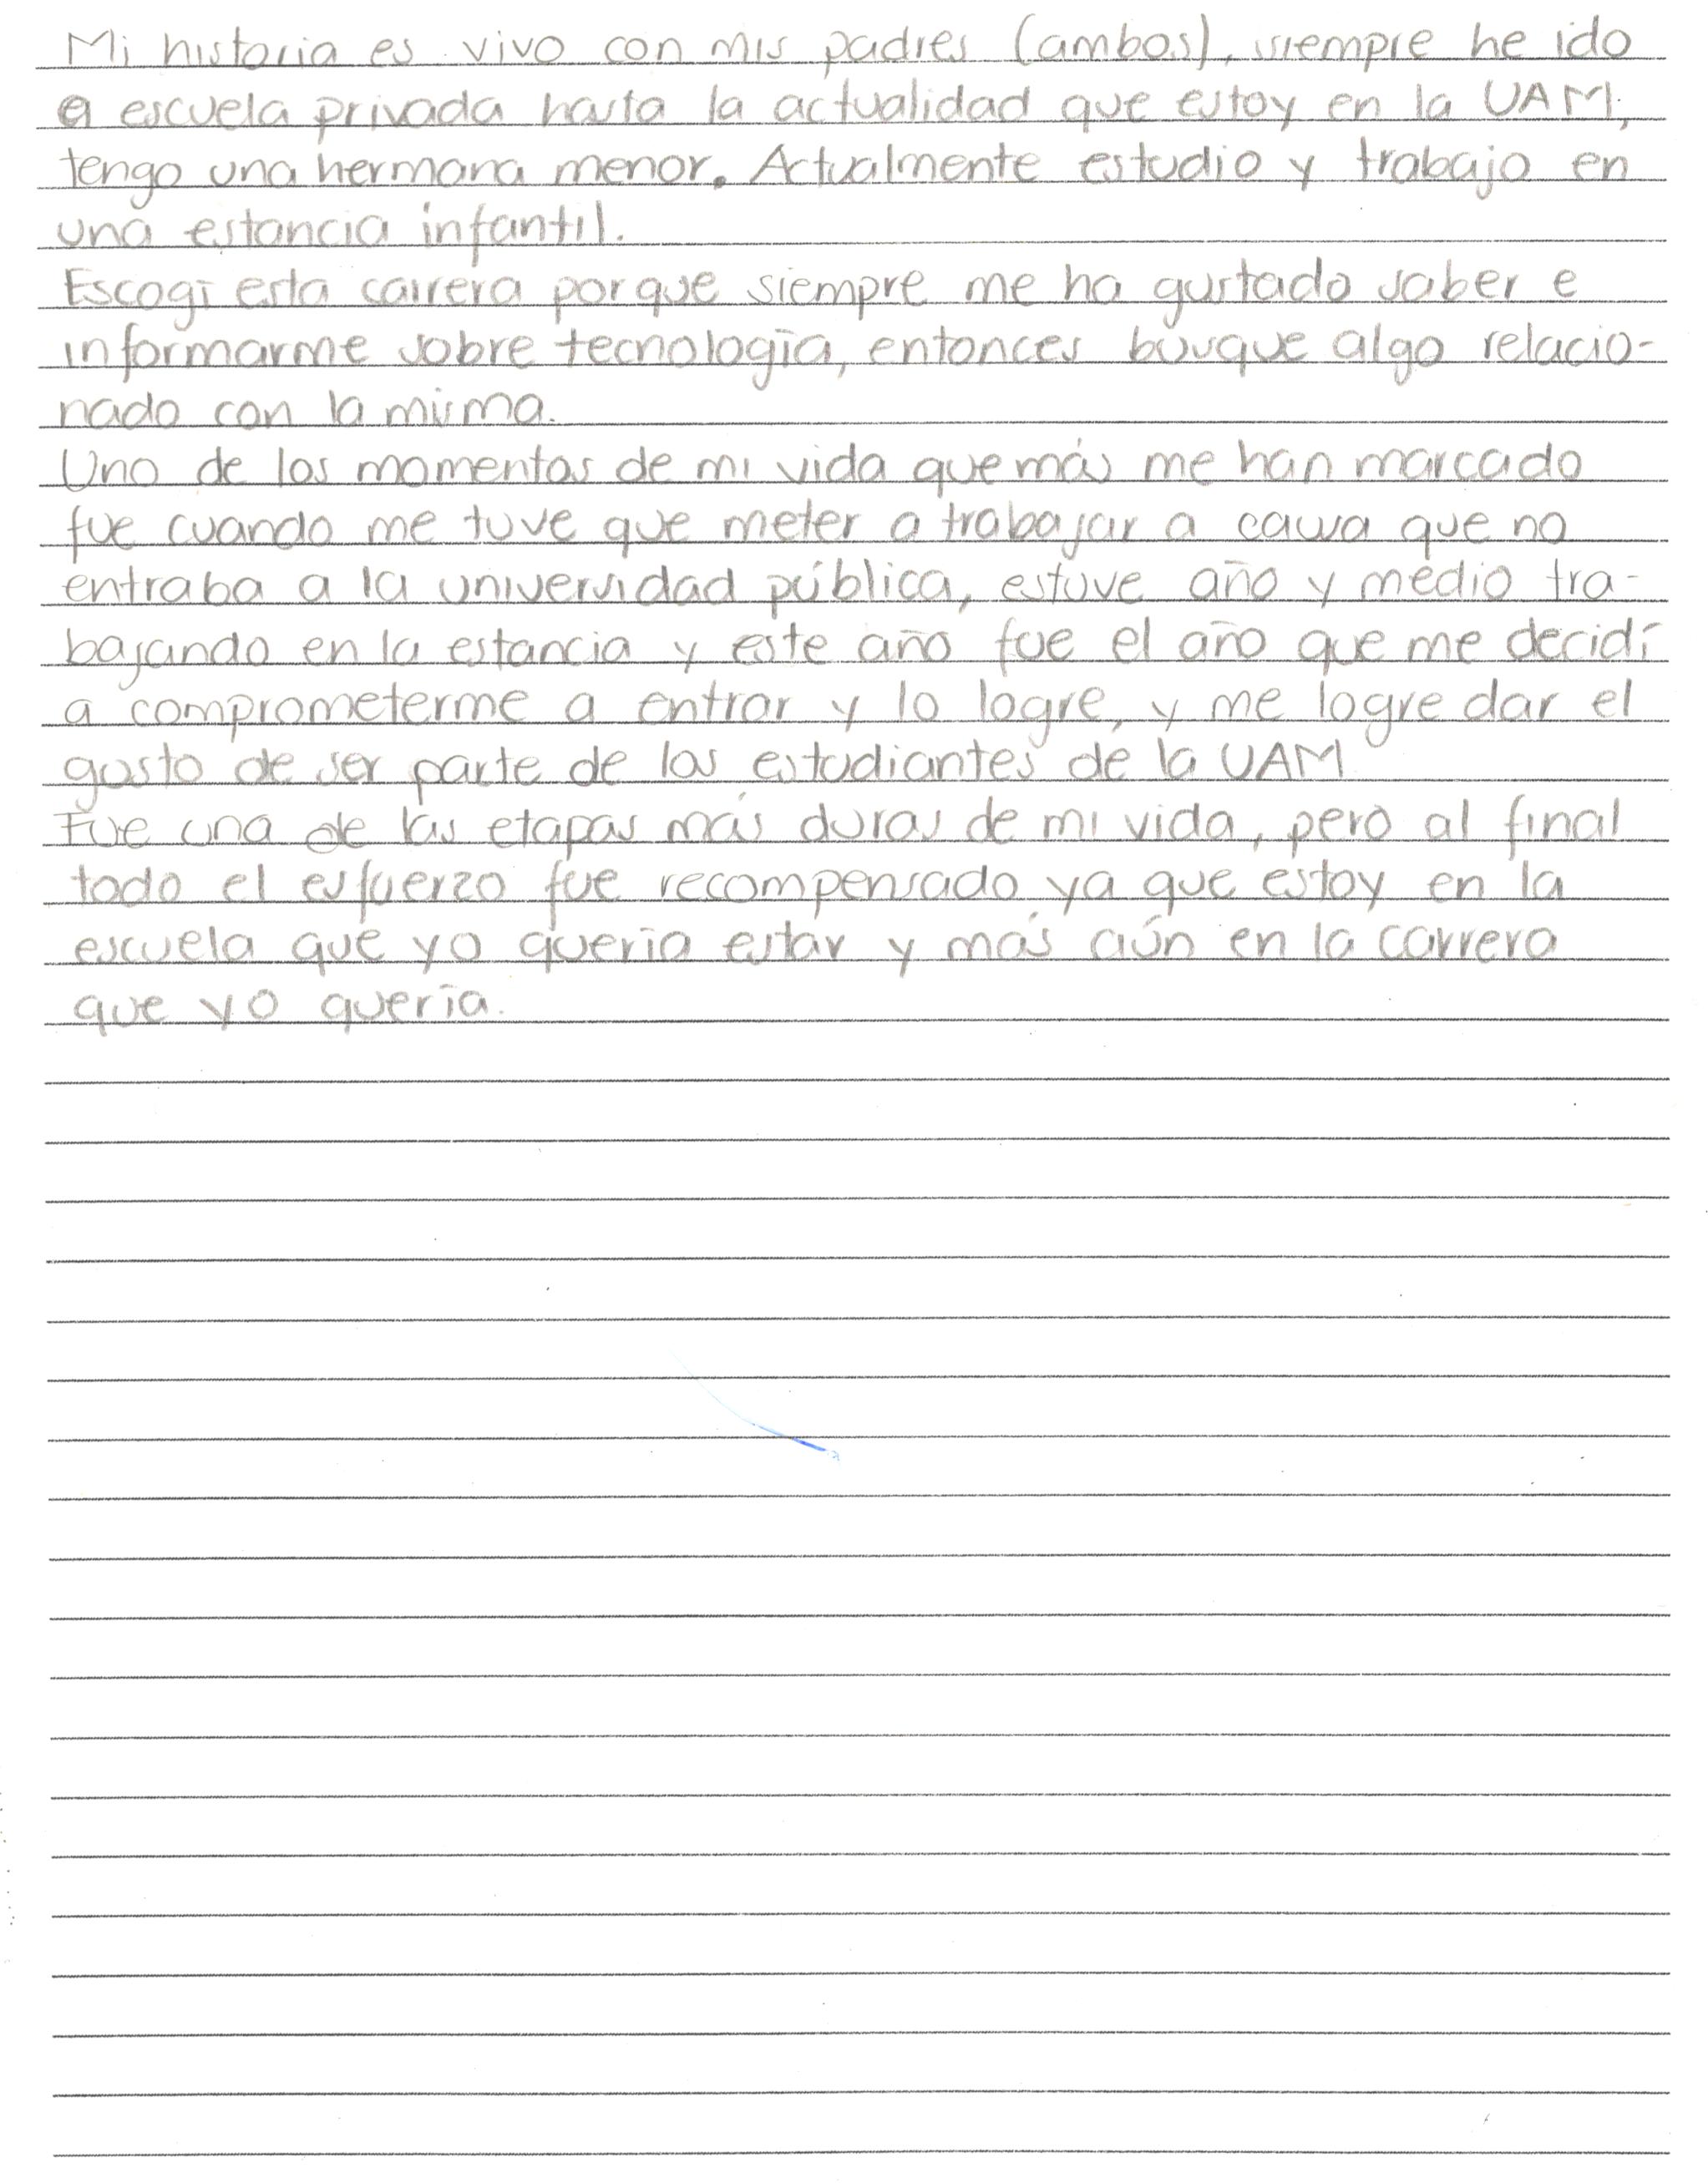 Mi historia es vivo con mis padres (ambos), siempre he ido
a escuela privada hasta la actualidad que estoy en la UAM,
tengo una hermana menor. Actualmente estudio y trabajo en
una estancia infantil.
Escogí esta carrera porque siempre me ha gustado saber e
informarme sobre tecnología, entonces busque algo relacio-
nado con la misma.
Uno de los momentos de mi vida que más me han marcado
fue cuando me tuve que meter a trabajar a causa que no
entraba a la universidad pública, estuve año y medio tra-
bajando en la estancia y este año fue el año que me decidí
a comprometerme a entrar y lo logre, y me logre dar el
gusto de ser parte de los estudiantes de la UAM
Fue una de las etapas más duras de mi vida, pero al final
todo el esfuerzo fue recompensado ya que estoy en la
escuela que yo queria estar y más aún en la carrera
que yo quería.